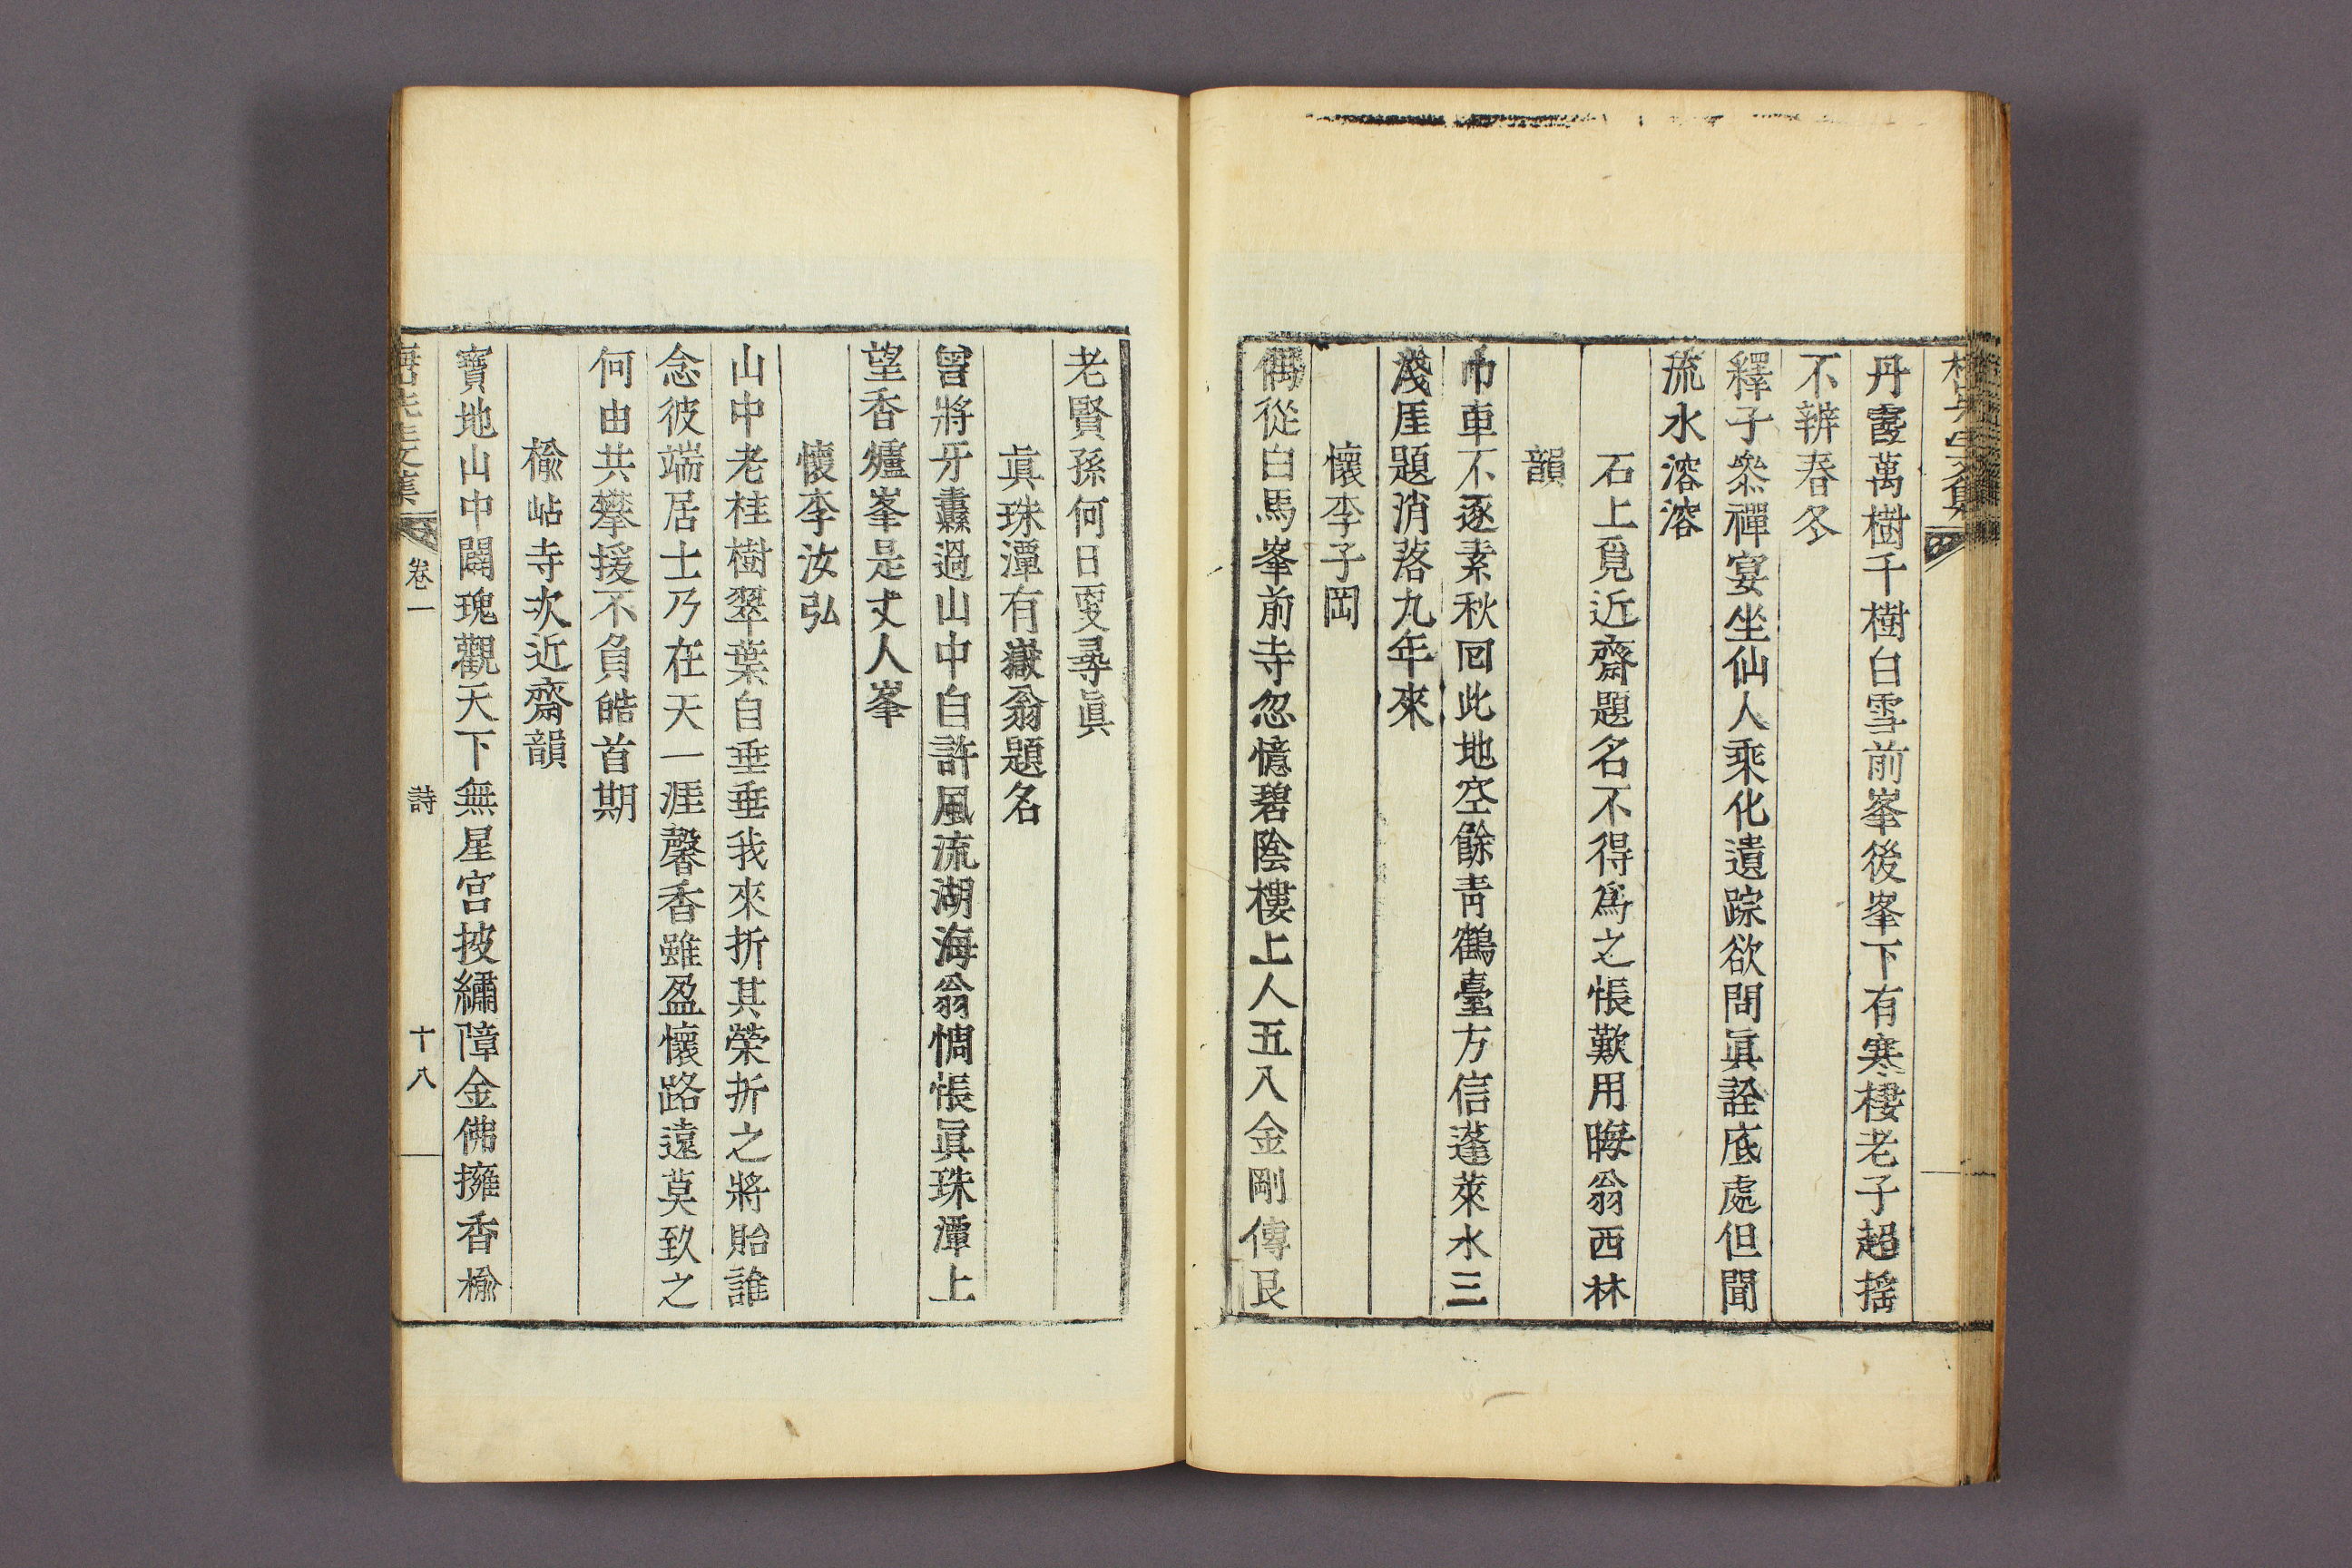 丹霞萬樹千樹白雪前峯後峯下有寒棲老子超搖
不辨春冬
釋子叅禪宴坐仙人乘化遺踪欲問眞詮底處但聞
流水溶溶
石上覓近齋題名不得爲之悵歎用晦翁西林
韻
巾車不逐素秋回此地空餘靑鶴臺方信蓬萊水三
淺厓題消落九年來
懷李子岡
偶從白馬峯前寺忽憶碧陰樓上人五入金剛傳艮
老賢孫何日更尋眞
眞珠潭有嶽翁題名
曾將牙纛過山中自許風流湖海翁惆悵眞珠潭上
望香爐峯是丈人峯
懷李汝弘
山中老桂樹翠葉自垂垂我來折其榮折之將貽誰
念彼端居士乃在天一涯馨香雖盈懷路遠莫致之
何由共攀援不負皓首期
楡岾寺次近齋韻
寶地山中闢瑰觀天下無星宮披繡障金佛擁香楡
卷一
詩
十八